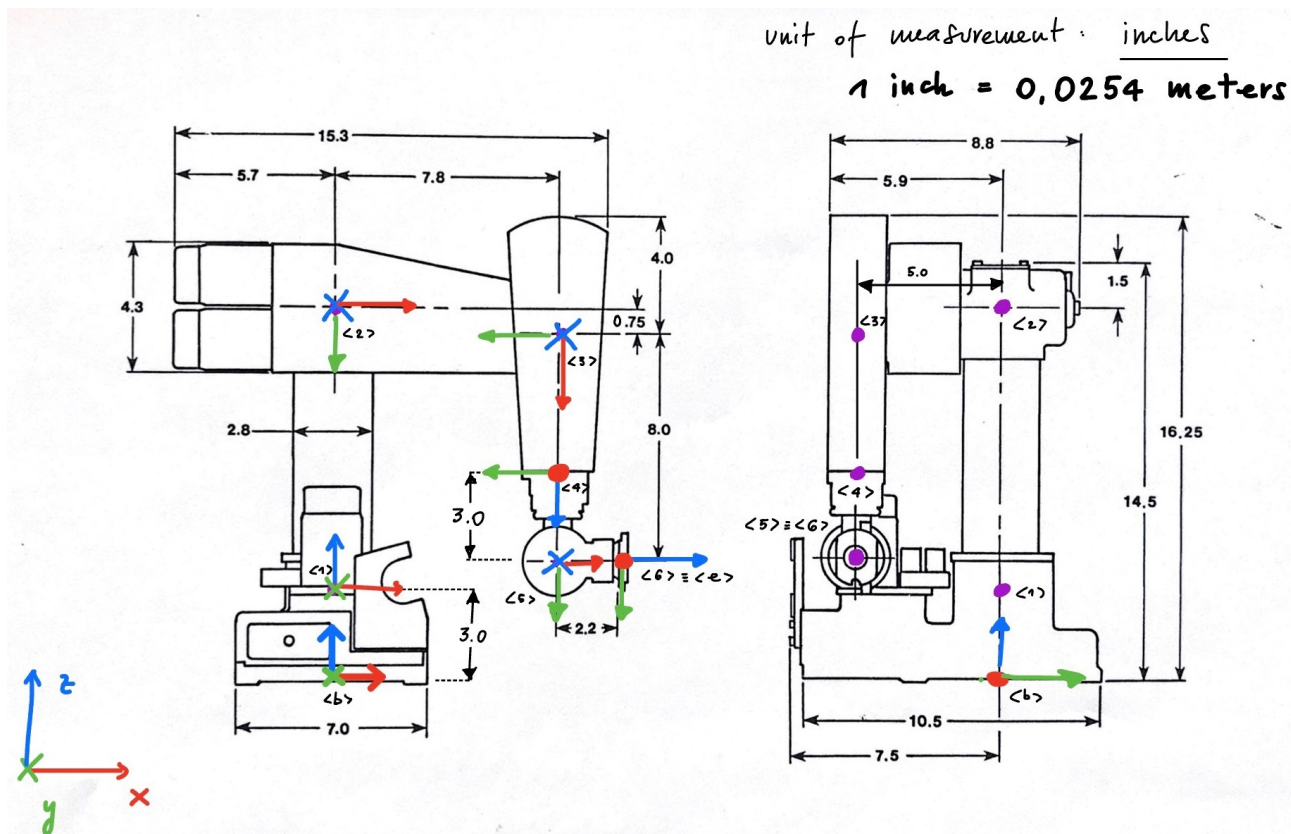 unit of measurement : inches
1 inch = 0,0254 meters
15.3
5.7
7.8
4.3
4.0
0.75
<2>
<3>
2.8
8.0
3.0
<4>
<1>
<5>
<6> ≡ <e>
2.2
3.0
<b>
7.0
z
x
y
8.8
5.9
5.0
1.5
<3>
<2>
16.25
14.5
<4>
<5>≡<6>
<1>
<b>
10.5
7.5